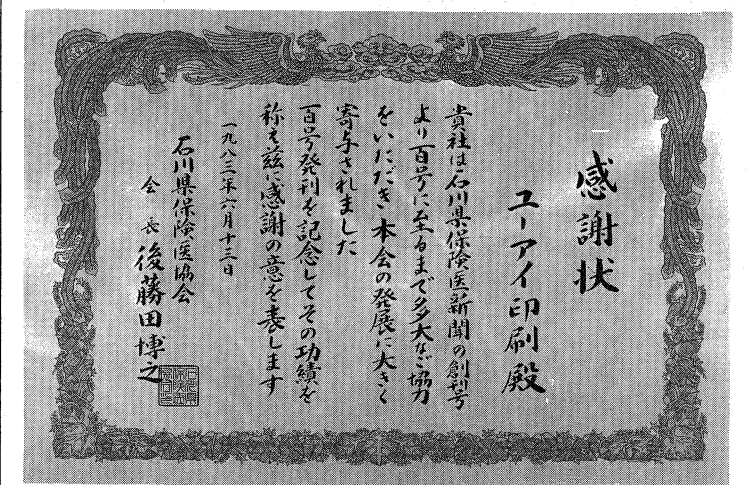 感謝状
ユーアイ印刷殿
貴社は石川県保険医新聞の創刊号
より百号に至るまで多大なご協力
をいただき本会の発展に大きく
寄与されました
百号発刊を記念してその功績を
称え茲に感謝の意を表します
一九八三年六月十三日
石川県保険医協会
会長 後藤田博之